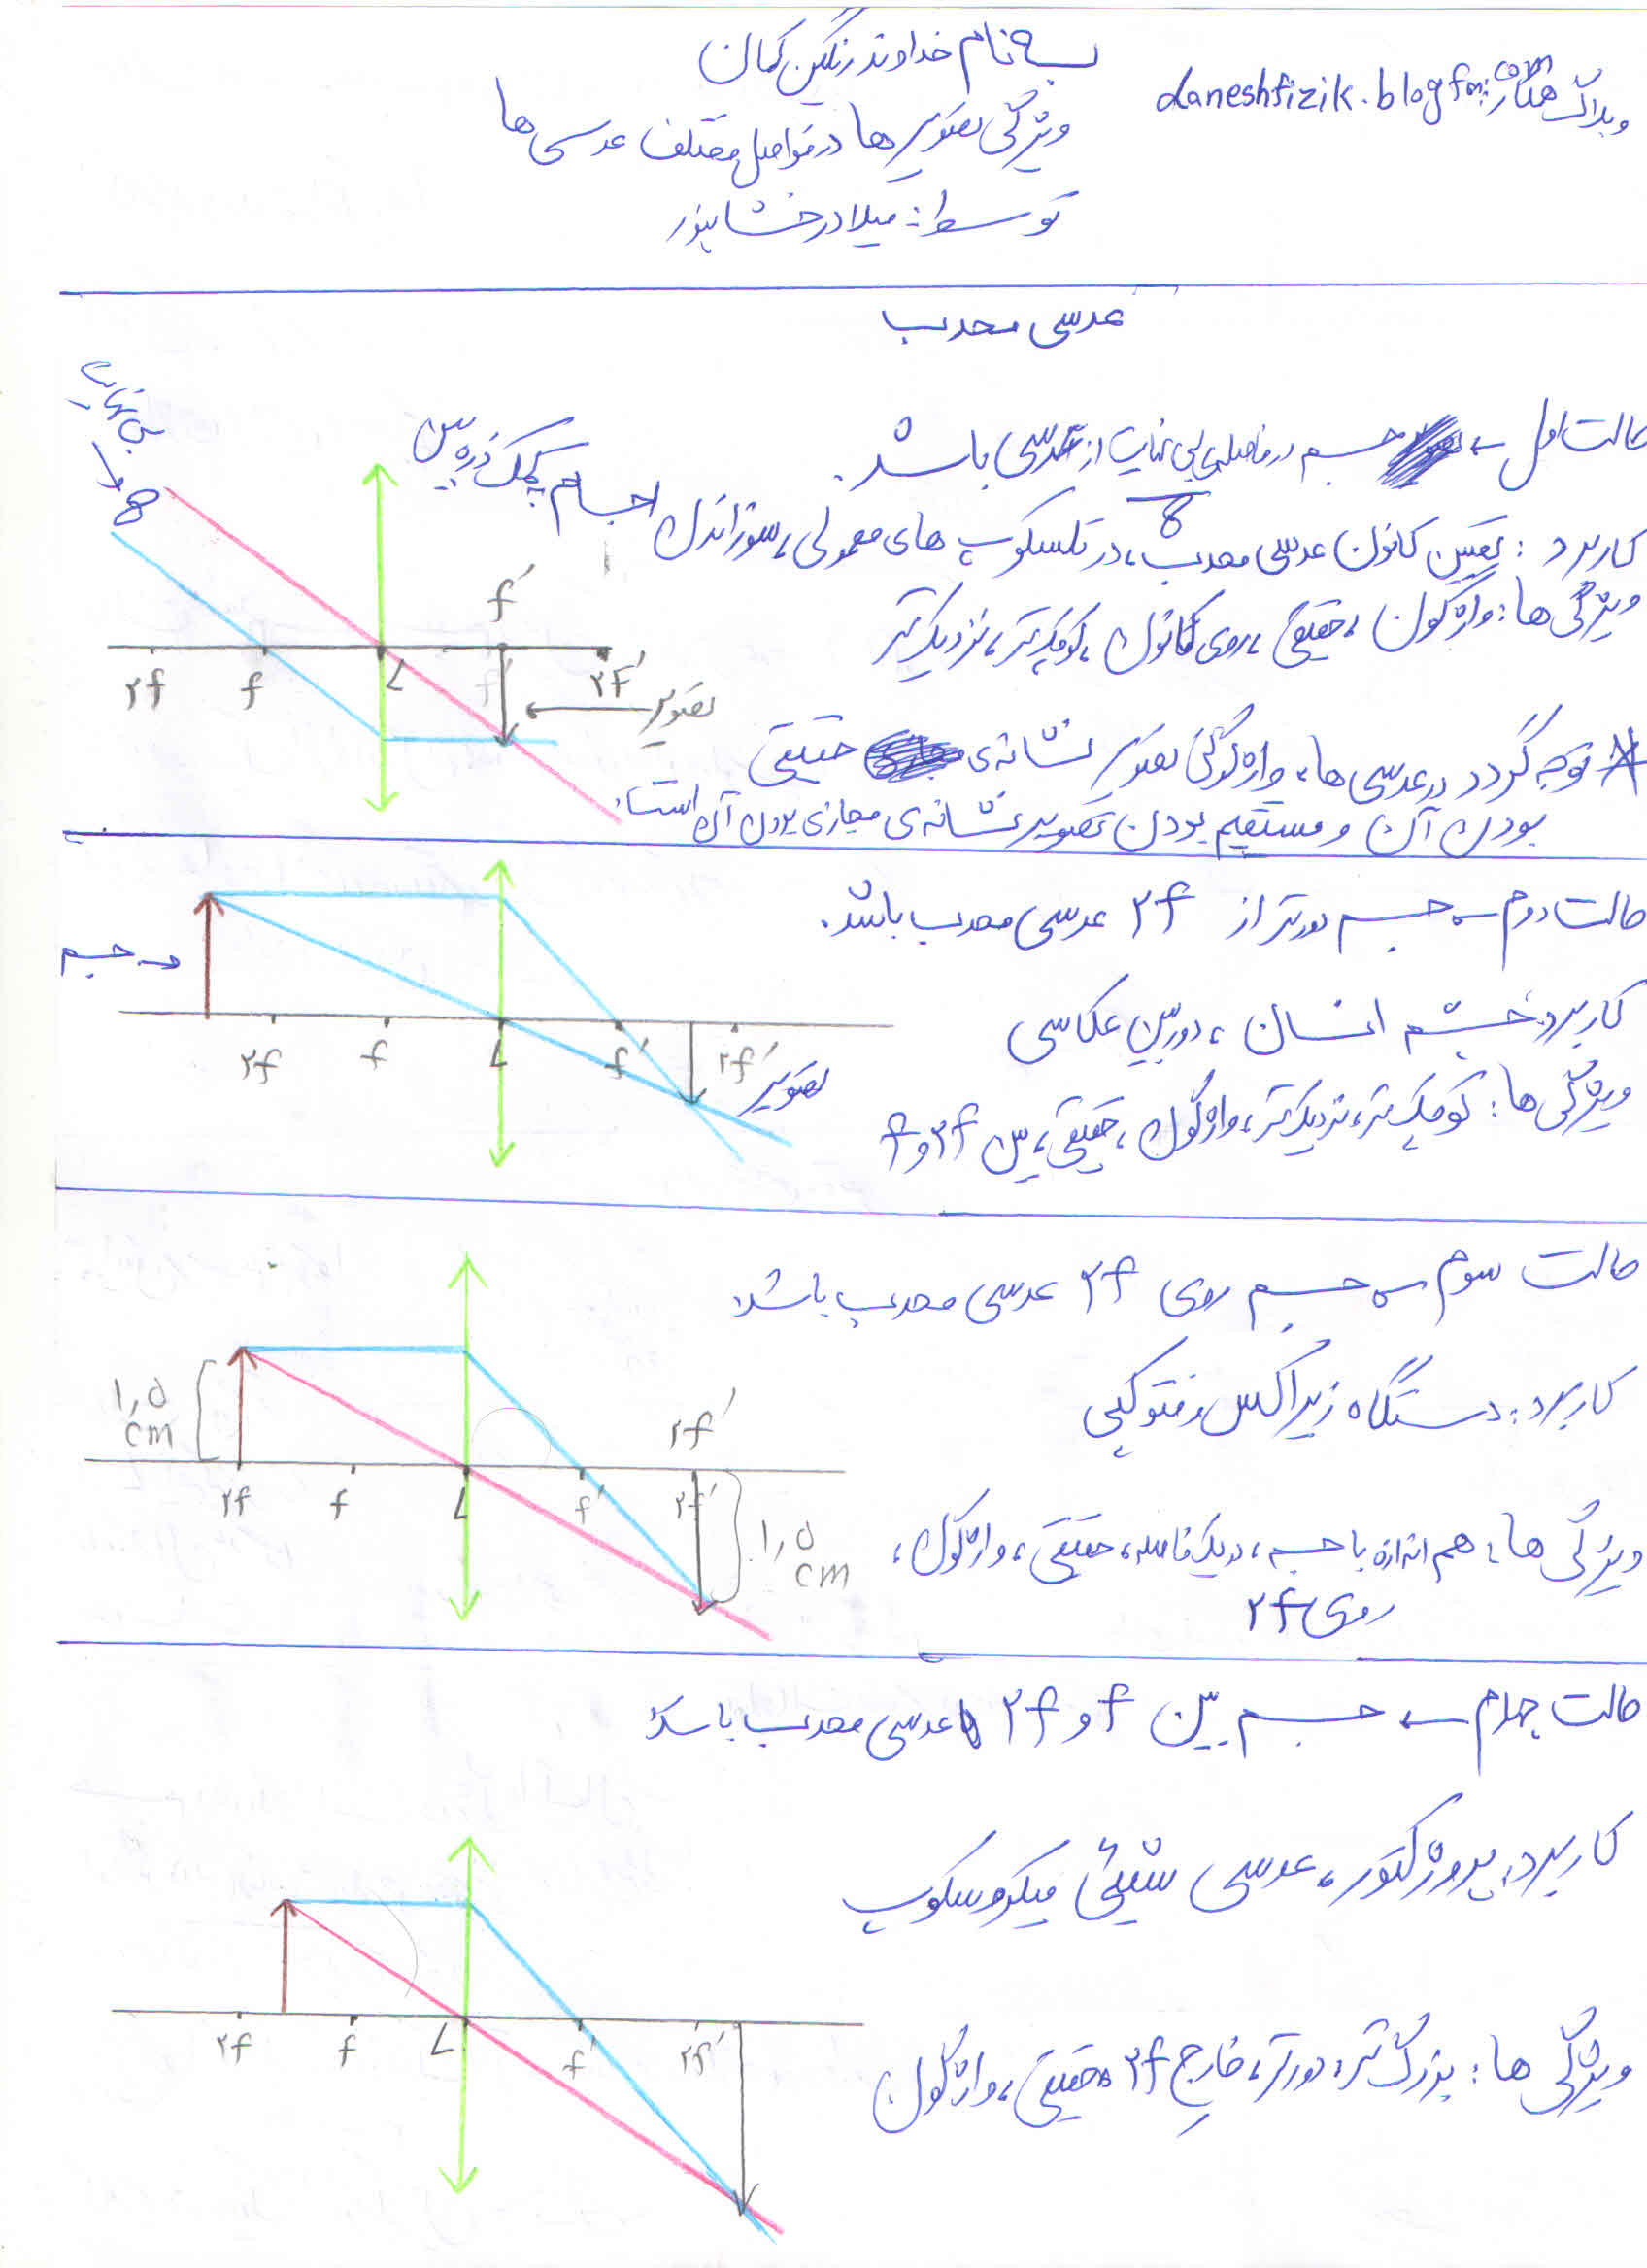 به نام خداوند رنگین کمان
وبلاگ همکار: daneshfizik.blogfa.com
ویژگی تصویرها در فواصل مختلف عدسی ها
توسط: میلاد درخشانپور
عدسی محدب
حالت اول ← جسم در فاصله ی بی نهایت از عدسی باشد.
∞
کاربرد: تعیین کانون عدسی محدب، در تلسکوپ های معمولی، سوزاندن اجسام بکمک ذره بین
ویژگی ها: واژگون، حقیقی، روی کانون، کوچک تر، نزدیک تر
بی نهایت
∞
f′
۲f f L f′ ۲f′
تصویر
* توجه گردد در عدسی ها، واژگونی تصویر نشانه ی حقیقی
بودن آن و مستقیم بودن تصویر نشانه ی مجازی بودن آن است.
حالت دوم ← جسم دورتر از ۲f عدسی محدب باشد.
جسم
کاربرد: چشم انسان، دوربین عکاسی
۲f f L f′ ۲f′
تصویر
ویژگی ها: کوچک تر، نزدیک تر، واژگون، حقیقی، بین ۲f و f
حالت سوم ← جسم روی ۲f عدسی محدب باشد.
کاربرد: دستگاه زیراکس، فتوکپی
۱,۵
cm
۲f′
۲f f L f′ ۲f′
۱,۵
cm
ویژگی ها: هم اندازه با جسم، در یک فاصله، حقیقی، واژگون،
روی ۲f
حالت چهارم ← جسم بین f و ۲f عدسی محدب باشد
کاربرد: پروژکتور، عدسی شیئی میکروسکوپ
۲f f L f′ ۲f′
ویژگی ها: بزرگ تر، دورتر، خارج ۲f، حقیقی، واژگون